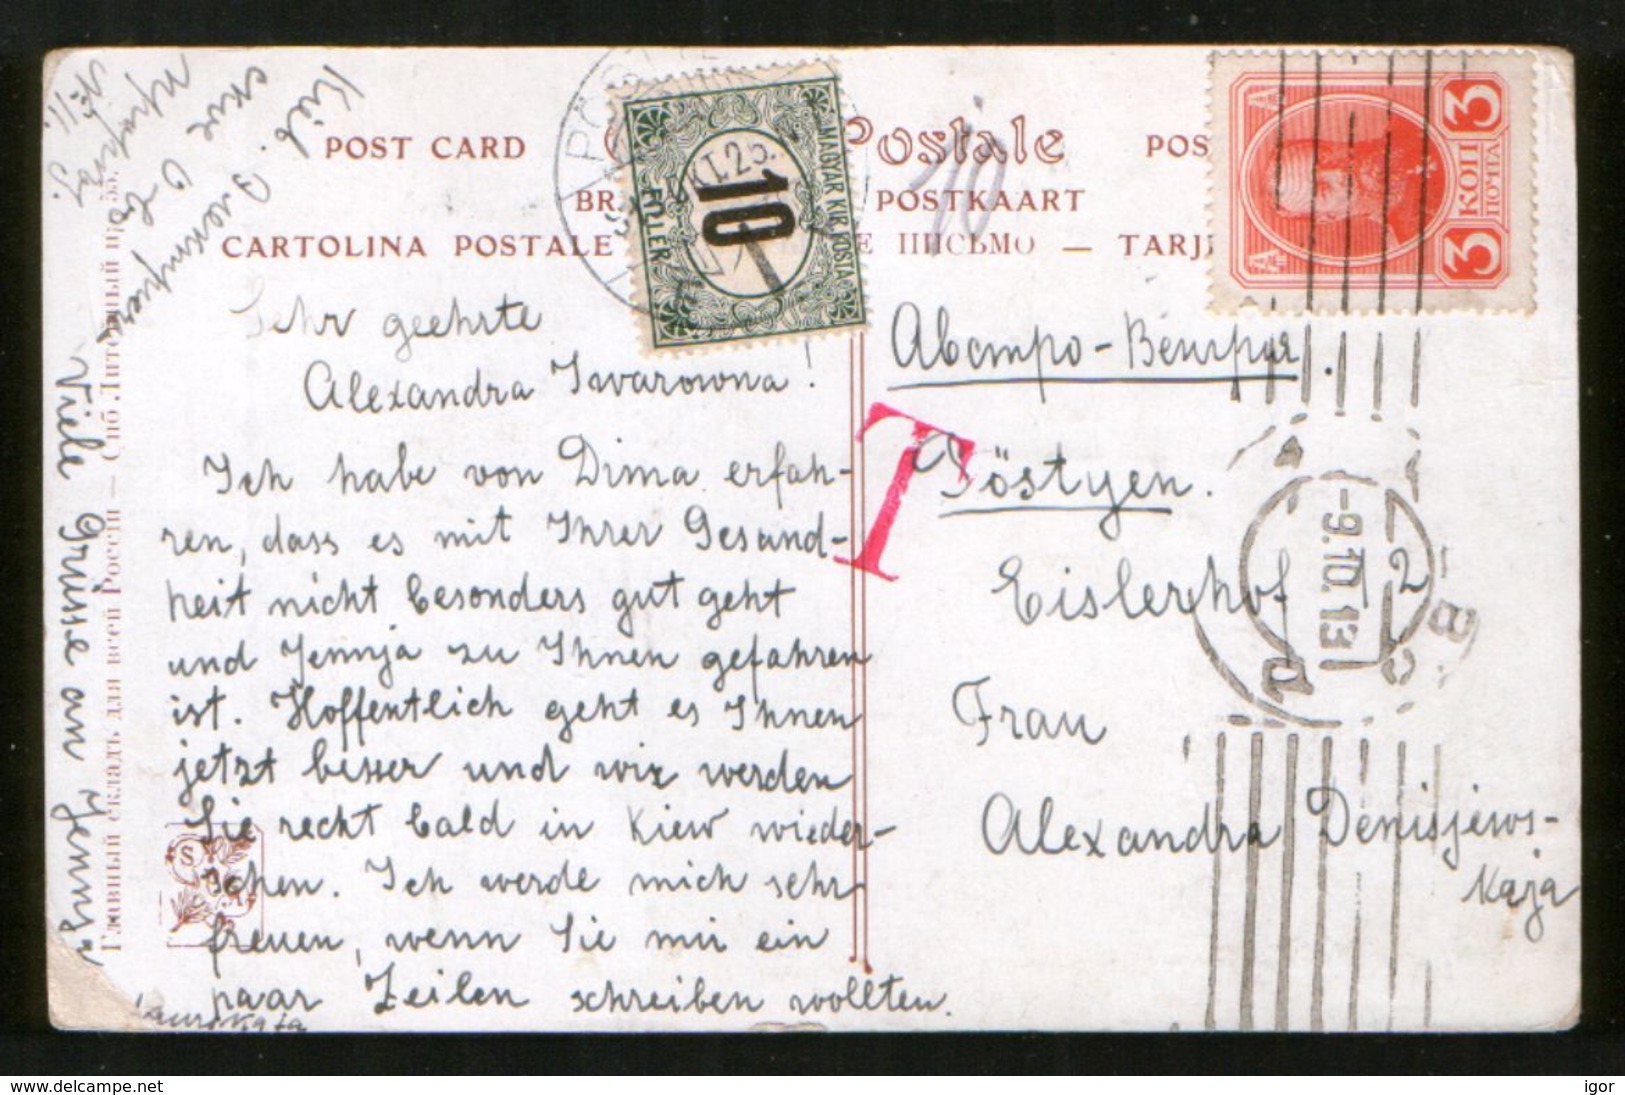 POST CARD
Postale
POS
BR
POSTKAART
CARTOLINA POSTALE
Е ПИСЬМО — TARJ
MAGYAR KIR. POSTA
10
FILLER
3 3
КОП
ПОЧТА
T
10
-9.10.13
2
Sehr geehrte
Alexandra Iwarowna!
Ich habe von Dima erfah-
ren, dass es mit Ihrer Gesand-
heit nicht besonders gut geht
und Jennja zu Ihnen gefahren
ist. Hoffentlich geht es Ihnen
jetzt besser und wir werden
Sie recht bald in Kiew wieder-
sehen. Ich werde mich sehr
freuen, wenn Sie mir ein
paar Zeilen schreiben wollten.
Viele Grüsse an Jennja
Kieb
Австро-Венгрия.
Pöstyen.
Eislerhof
Frau
Alexandra Denisjews-
kaja
Главный складъ для всей Россіи — Спб. Литейный пр. 55.
www.delcampe.net
igor